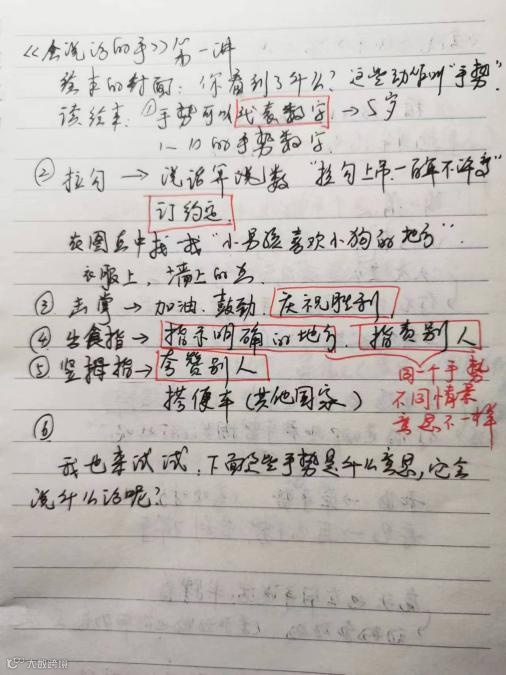 《会说话的手》第一讲
绘本的封面：你看到了什么？这些动作叫“手势”.
读绘本：①手势可以代表数字 → 5岁
1~10的手势数字.
② 拉勾 → 说话算说数 “拉勾上吊一百年不许变”
订约定.
在图画中找一找“小男孩喜欢小狗的地方”.
衣服上，墙上的画.
③ 击掌 → 加油.鼓劲.庆祝胜利
④ 出食指→ 指示明确的地方.指责别人
⑤ 竖拇指→ 夸赞别人
同一个手势
搭便车（其他国家）
不同情景
意思不一样
⑥
我也来试试，下面这些手势是什么意思，它会
说什么话呢？
大数跨境